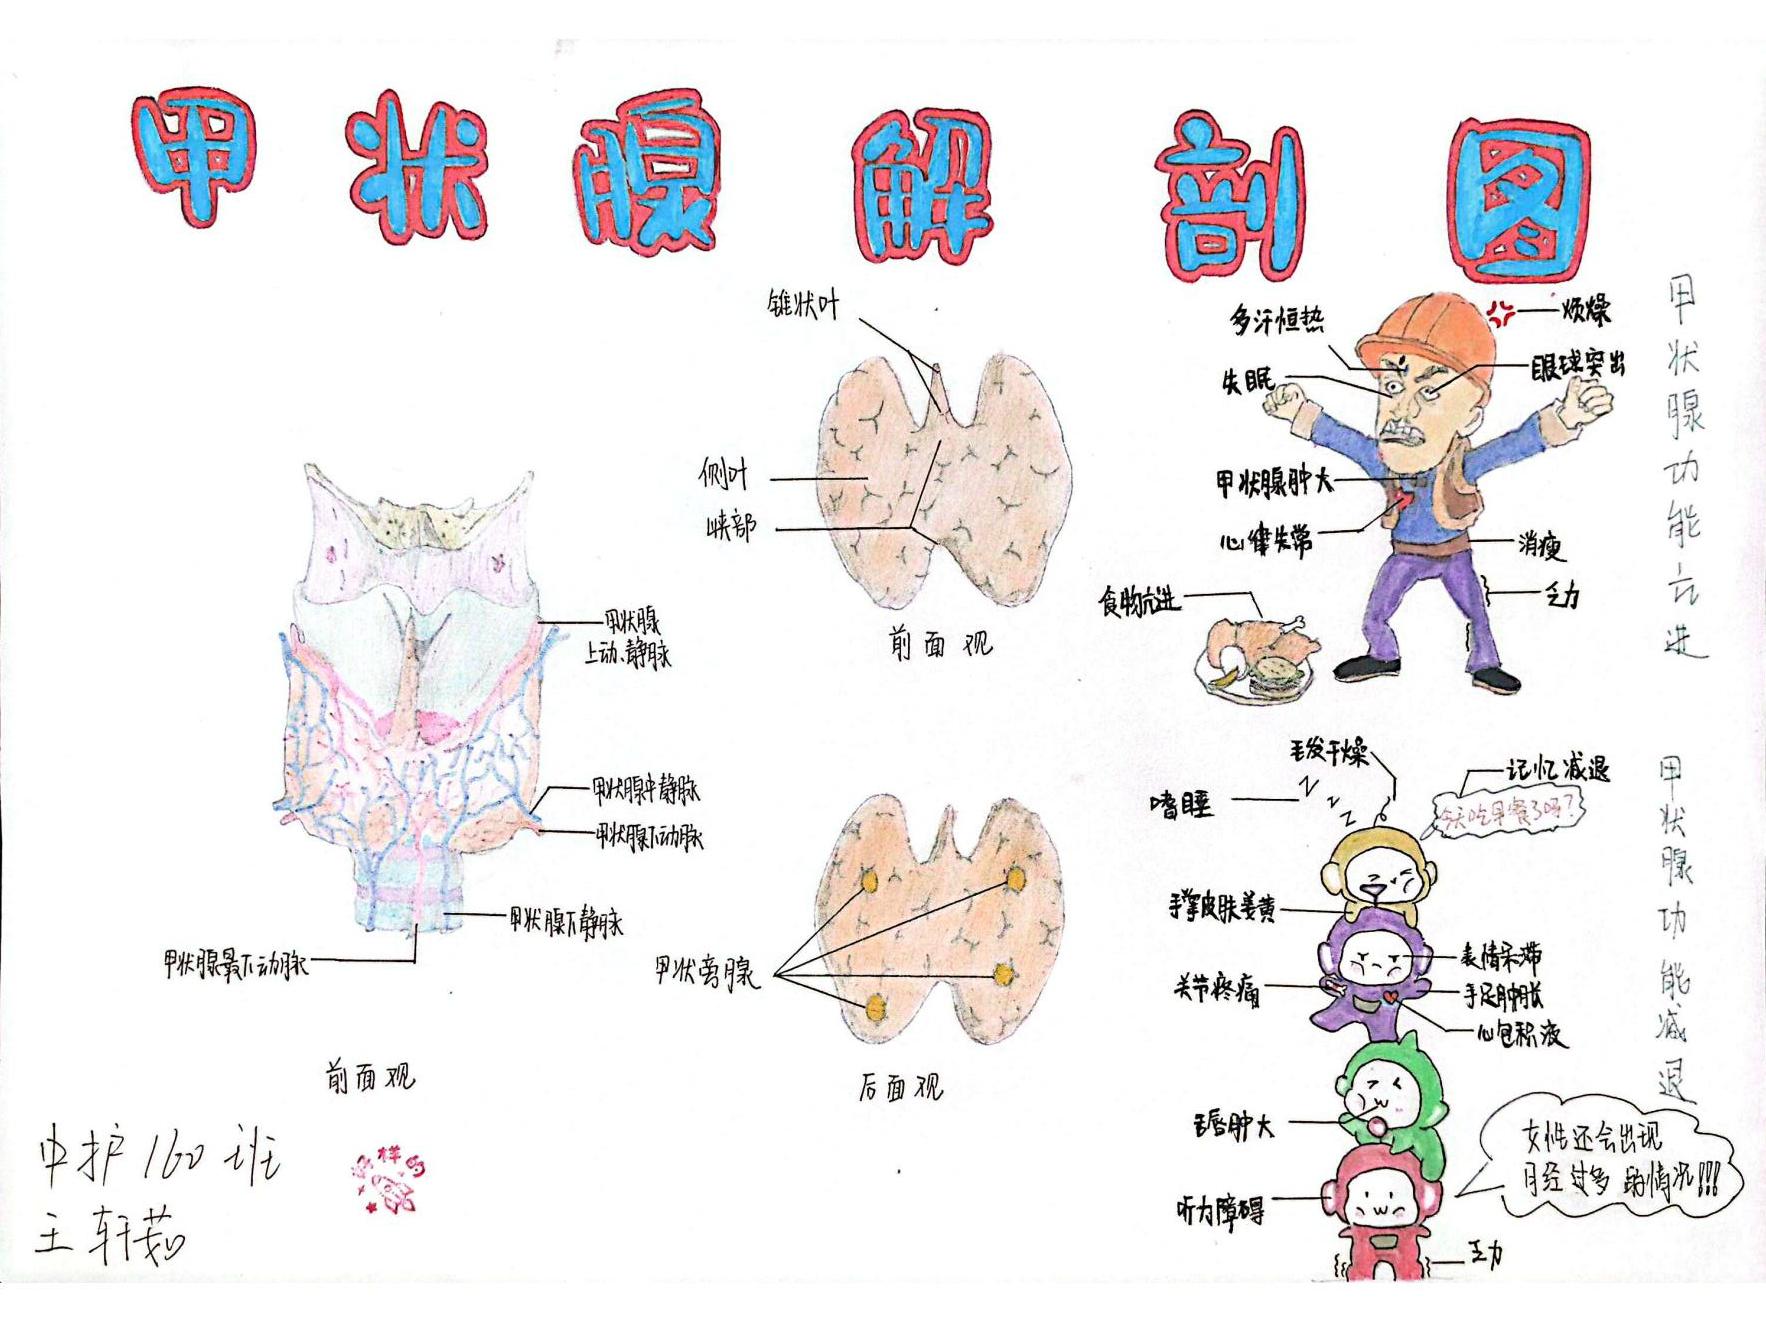 甲状腺解剖图
锥状叶
侧叶
峡部
前面观
甲状腺
上动、静脉
甲状腺中静脉
甲状腺下动脉
甲状腺下静脉
甲状腺最下动脉
前面观
甲状旁腺
后面观
甲状腺功能亢进
多汗恒热
烦燥
失眠
眼球突出
甲状腺肿大
心律失常
消瘦
乏力
食物亢进
甲状腺功能减退
毛发干燥
记忆减退
嗜睡
z z z z
今天吃早餐了吗?
手掌皮肤姜黄
表情呆滞
关节疼痛
手足肿胀
心包积液
唇肿大
听力障碍
乏力
女性还会出现
月经过多的情况!!!
中护160班
王轩茹
好样的